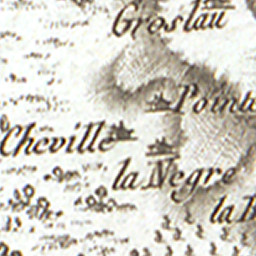 Groslau
Pointe
Cheville
la Negre
la